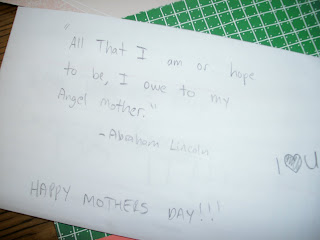 "All That I am or hope
to be, I owe to my
Angel Mother."
-Abraham Lincoln
I ♥ U
HAPPY MOTHERS DAY!!!